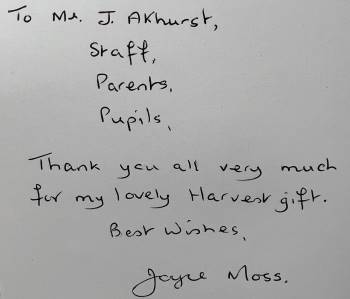 To Mr. J. Akhurst,
Staff,
Parents,
Pupils,
Thank you all very much
for my lovely Harvest gift.
Best Wishes,
Joyce Moss.